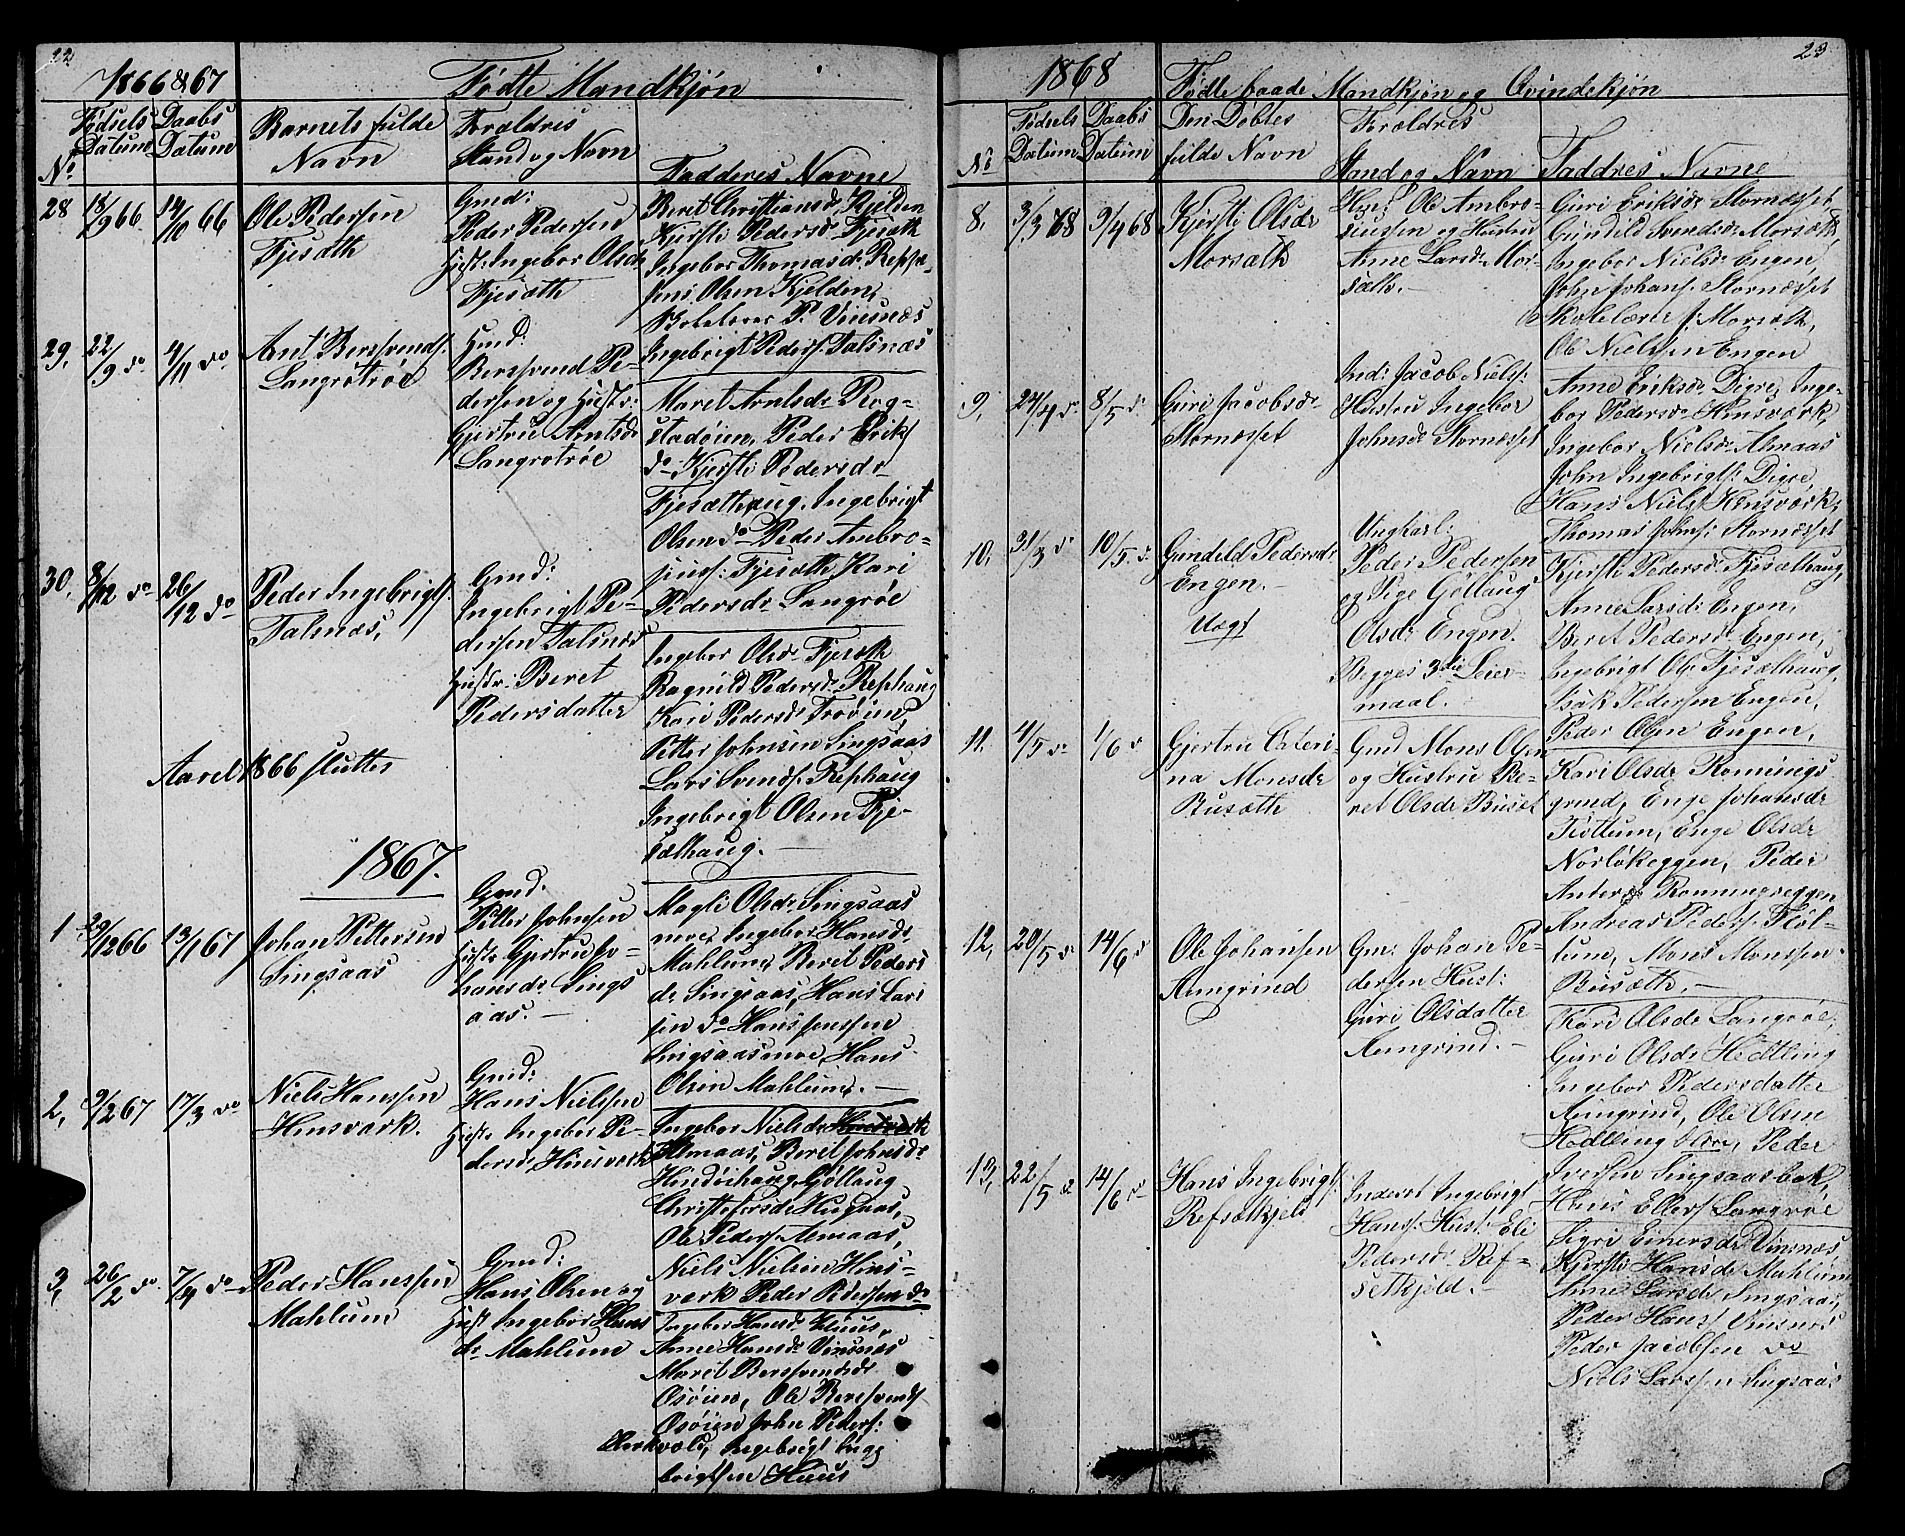 22
1866 & 67
Fødte Mandkjøn
No
Fødsels Datum
Daabs Datum
Barnets fulde Navn
Forældres Stand og Navn
Fadderes Navne
28
18/9 66.
14/10 66
Ole Pedersen
Fjesæth
Gmd:
Peder Pedersen
Hust: Ingebor Olsdr
Fjesæth
Beret Christiansdr Kjelden
Kjersti Pedersdr Fjesæth
Ingebor Thomasdr.
Jens Olsen Kjelden,
P. Vinsnæs
Ingebrigt Peders. Talsnæs
29,
22/9 do
4/11 do
Arnt Bersvends.
Langrøtrøe
Hmd:
Bersvend Pe-
dersen og Hustr:
Gjertru Arntsdr
Langrøtrøe
Maret Arntsdr Rog-
stadøien, Peder Eriks
do Kjersti Pedersdr
Fjesæthaug, Ingebrigt
Olsen do Peder Ambro-
siuss. Fjesæth, Kari
Pedersdr Langrøe
30,
8/12 do
26/12 do
Peder Ingebrigts.
Talsnæs,
Gmd:
Ingebrigt Pe-
dersen Talsnæs
Hustr: Beret
Pedersdatter
Ingebor Olsdr Fjesæth
Ragnild Pedersdr Rephaug
Kari Pedersdr Trøøien,
Petter Johnsen Singsaas
Lars Svends. Rephaug
Ingebrigt Olsen Fje-
sæthaug. —
Aaret 1866 slutter
1867.
1
29/12 66
13/1 67
Johan Pettersen
Singsaas
Gmd.
Petter Johnsen
Hustr Gjertru Jo-
hansdr Sings
aas. —
Magli Olsdr Singsaas
moe, Ingebor Hansdr
Mahlum, Beret Peders
dr Singsaas, Hans Lar
sen do Hans Jenssen
Singsaasmoe, Hans
Olsen Mahlum. —
2,
9/2 67
17/3 do
Niels Hanssen
Hinsværk.
Gmd:
Hans Nielssen
Hustr Ingebor Pe-
dersdr Hinsværk
Ingebor Nielsdr Hinsværk
Almaas, Beret Johnsdr
Hindøihaug, Göllaug
Christofersdr Hugaas,
Ole Peders. Almaas,
Niels Nielsen Hins-
værk Peder Pedersen do
3,
26/2 do
7/4 do
Peder Hanssen
Mahlum
Gmd:
Hans Olsen og
Hust Ingebor Hans
dr Mahlum
Ingebor Hansdr Huus,
Anne Hansdr Vinsnæs
Maret Bersvendsdr
Osøien, Ole Bersvends
Osøien John Peders:
Ingebrigt Inge
brigtsen Huus
23
1868
Fødte baade Mandkjøn og Qvindekjøn
No
Fødsels Datum
Daabs Datum
Den Døbtes
fulde Navn
Forældres
Stand og Navn
Faddres Navne
8,
3/3 68
9/4 68
Kjersti Olsdr
Morsæth
Ole Ambro-
siussen og Hustru
Anne Larsdr Mor-
sæth. —
Guri Eriksdr Stornæsset
Gunild Svendsdr Morsæth,
Ingebor Nielsdr Engen,
John Johans. Stornæsset
Skolelærer J. Morsæth,
Ole Nielssen Engen
9,
24/4 do
8/5 do
Guri Jacobsdr
Stornæsset
Ind: Jacob Niels:
Hustru Ingebor
Johnsdr Stornæsset
Anne Eriksdr Digre, Inge-
bor Pedersdr Hinsværk,
Ingebor Nielsdr Almaas
John Ingebrigts: Digre
Hans Niels Hinsværk,
Thomas Johns: Stornæsset
10,
31/3 do
10/5. do
Gundeld Pedersdr
Engen. —
Uægt
Ungkarl:
Peder Pedersen
og Pige Göllaug
Olsdr Engen.
Begges 3die Leier-
maal.
Kjersti Pedersdr. Fjesæthaug,
Anne Larsdr Engen,
Beret Pedersdr Engen,
Ingebrigt Ols Fjesæthaug,
Isak Pedersen Engen,
Peder Olsen Engen,
11,
4/5 do
1/6 do
Gjertru Osteri-
na Monsdr
Busæth
Gmd Mons Olsen
og Hustrue Be-
ret Olsdr Buset
Kari Olsdr Ronnings
grind, Enge Johansdr
Flottum, Enge Olsdr
Norløkeggen, Peder
Anders Ronningseggen
Andreas Peders. Flöt-
tum, Mons Monssen
Busæth. —
12,
20/5 do
14/6 do
Ole Johansen
Aungrind
Gm: Johan Pe-
dersen Hust:
Guri Olsdatter
Aungrind. —
Kari Olsdr Langrøe,
Guri Olsdr Hedtling
Ingebor Pedersdatter
Aungrind, Ole Olsen
Hedtling Peder
Iversen Singsaasbak,
Hans Ellers. Langrøe
13,
22/5 do
14/6 do
Hans Ingebrigts.
Refsætkjeld
Inderst Ingebrigt
Hans. Hust: Eli
Pedersdr Ref-
setkjeld. —
Sigri Einersdr Vinsnæs
Kjersti Hansdr Mahlum
Anne Larsdr Singsaas,
Peder Hans. Vinsnæs
Peder Jacobsen do
Niels Larssen Singsaas